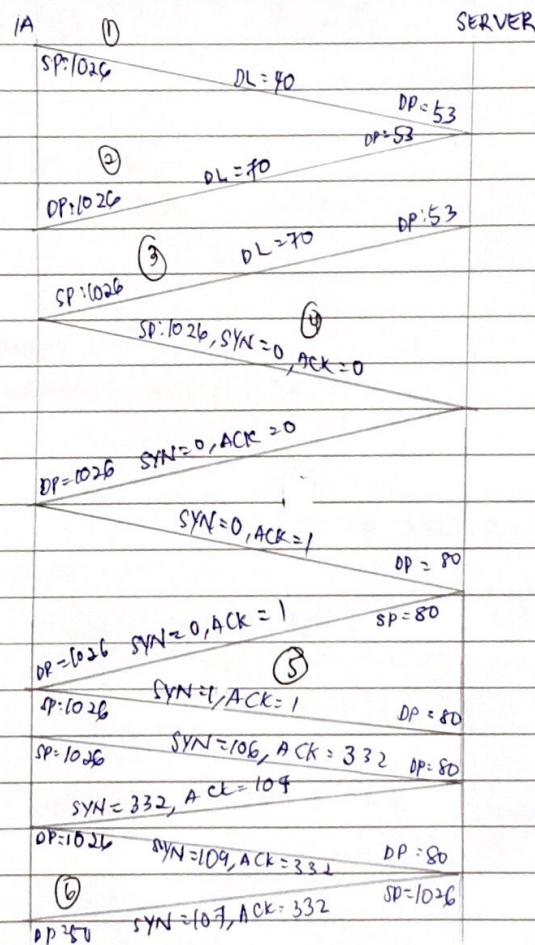 1A
①
SERVER
SP:1026
DL=40
DP=53
②
DP=53
DL=70
DP:1026
DP:53
③
DL=70
SP:1026
④
SP:1026, SYN=0, ACK=0
DP=1026 SYN=0, ACK=0
SYN=0, ACK=1
DP=80
SP=80
DP=1026 SYN=0, ACK=1
⑤
SYN=1, ACK=1
SP:1026
DP=80
SYN=106, ACK=332
SP=1026
DP=80
SYN=332, ACK=109
DP=1026
SYN=109, ACK=332
DP=80
⑥
SP=1026
DP=80
SYN=107, ACK=332